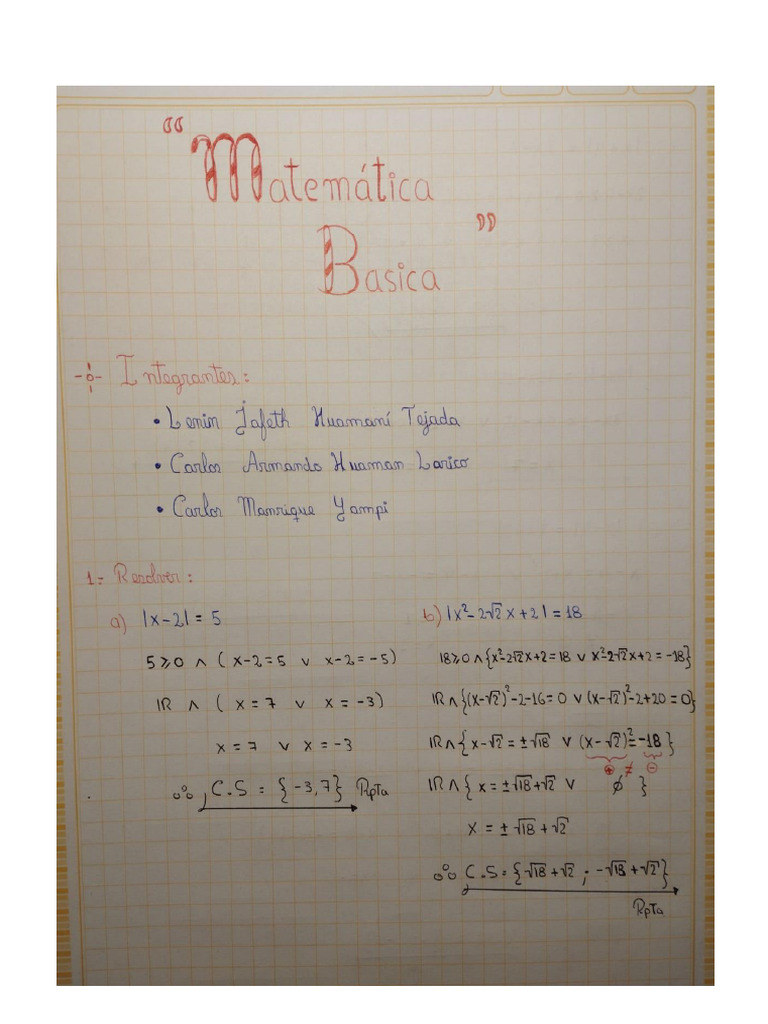 "Matemática
Basica"
Integrantes:
• Lenin Jafeth Huamaní Tejada
• Carlos Armando Huaman Larico
• Carlos Manrique Yampi
1.- Resolver:
a) |x-2| = 5
5 ⩾ 0 ∧ ( x-2=5 ∨ x-2=-5)
IR ∧ ( x = 7 ∨ x = -3)
x = 7 ∨ x = -3
∴ C.S = {-3,7} Rpta
b) |x²-2√2 x+2| = 18
18⩾0 ∧ {x²-2√2x+2=18 ∨ x²-2√2x+2=-18}
IR ∧ {(x-√2)²-2-16=0 ∨ (x-√2)²-2+20=0}
IR ∧ {x-√2 = ±√18 ∨ (x-√2)²=-18}
⊕ ≠ ⊖
IR ∧ { x = ±√18+√2 ∨ ∅ }
x = ±√18+√2
∴ C.S = {√18+√2 ; -√18+√2}
Rpta